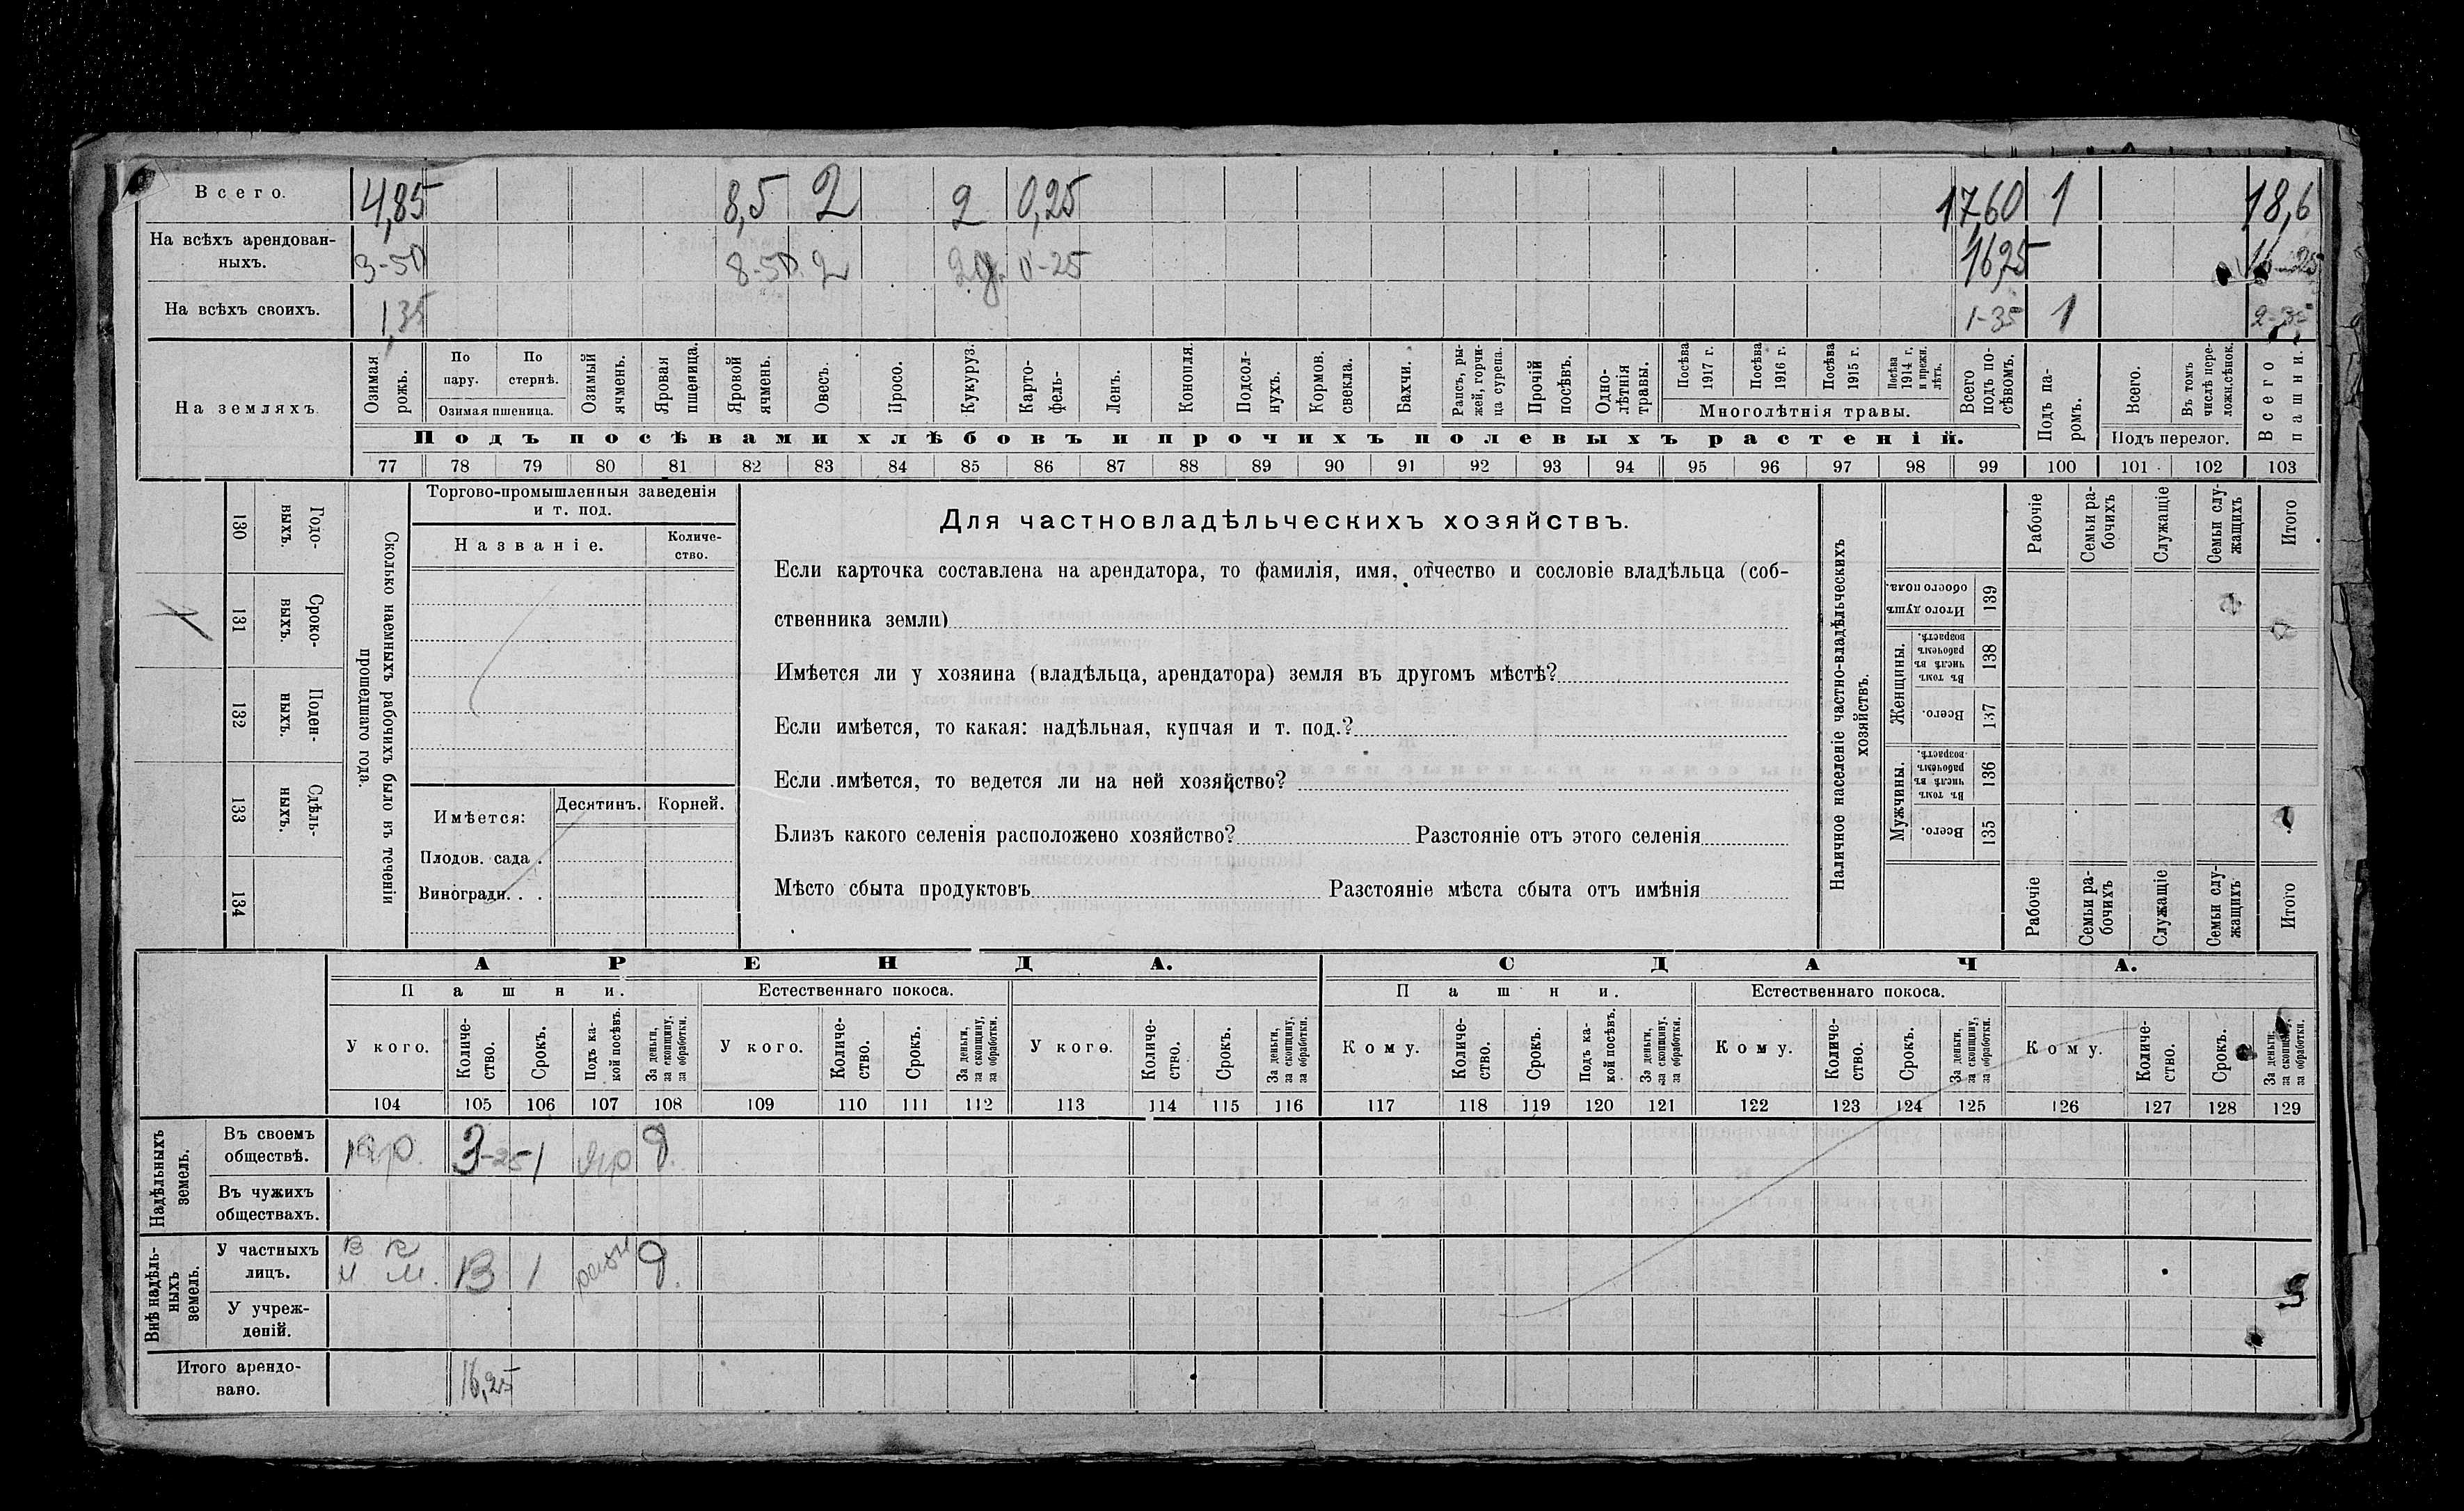 Всего. 4,85 8,5 2 2 0,25 17,60 1 18,6
На всѣхъ арендован-
ныхъ. 3-50 8-50. 2 0-25 16,25 16-25
На всѣхъ своихъ. 1,35 1-35 1 2-35
На земляхъ.
Озимая рожь.
По пару.
По стернѣ.
Озимая пшеница.
Озимый ячмень.
Яровая пшеница.
Яровой ячмень.
Овесъ.
Просо.
Кукуруз.
Карто-
фель-
Ленъ.
Конопля.
Подсол-
нухъ.
Кормов. свекла.
Бахчи.
Рапсъ, ры-
жей, горчи-
ца сурепа.
Прочій посѣвъ.
Одно-
лѣтнія травы.
Посѣва 1917 г.
Посѣва 1916 г.
Посѣва 1915 г.
Посѣва 1914 г. и прежн. лѣтъ.
Многолѣтнія травы.
Всего подъ по-
сѣвомъ.
Подъ па-
ромъ.
Всего.
Въ томъ числѣ пере-
ложн. сѣнок.
Подъ перелог.
Всего пашни.
Подъ посѣвами хлѣбовъ и прочихъ полевыхъ растеній.
77 78 79 80 81 82 83 84 85 86 87 88 89 90 91 92 93 94 95 96 97 98 99 100 101 102 103
130 Годо-
выхъ.
131 Сроко-
выхъ.
132 Поден-
ныхъ.
133 Сдѣль-
ныхъ.
134
Сколько наемныхъ рабочихъ было въ теченіи
прошедшаго года.
Торгово-промышленныя заведенія
и т. под.
Названіе.
Количе-
ство.
Имѣется:
Десятинъ.
Корней.
Плодов. сада .
Виноградн. . .
Для частновладѣльческихъ хозяйствъ.
Если карточка составлена на арендатора, то фамилія, имя, отчество и сословіе владѣльца (соб-
ственника земли)
Имѣется ли у хозяина (владѣльца, арендатора) земля въ другомъ мѣстѣ?
Если имѣется, то какая: надѣльная, купчая и т. под.?
Если имѣется, то ведется ли на ней хозяйство?
Близъ какого селенія расположено хозяйство? Разстояніе отъ этого селенія
Мѣсто сбыта продуктовъ Разстояніе мѣста сбыта отъ имѣнія
Наличное населеніе частно-владѣльческихъ
хозяйствъ.
Рабочіе
Семьи ра-
бочихъ
Служащіе
Семьи слу-
жащихъ
Итого
Итого душъ обоего пола. 139
Женщины.
Въ томъ числѣ въ рабочемъ возрастѣ. 138
Всего. 137
Мужчины.
Въ томъ числѣ въ рабочемъ возрастѣ. 136
Всего. 135
Рабочіе
Семьи ра-
бочихъ
Служащіе
Семьи слу-
жащихъ
Итого
АРЕНДА.
СДАЧА.
Пашни.
Естественнаго покоса.
Пашни.
Естественнаго покоса.
У кого.
Количе-
ство.
Срокъ.
Подъ ка-
кой посѣвъ.
За деньги, за скопщину, за обработки.
У кого.
Количе-
ство.
Срокъ.
За деньги, за скопщину, за обработки.
У кого.
Количе-
ство.
Срокъ.
За деньги, за скопщину, за обработки.
Кому.
Количе-
ство.
Срокъ.
Подъ ка-
кой посѣвъ.
За деньги, за скопщину, за обработки.
Кому.
Количе-
ство.
Срокъ.
За деньги, за скопщину, за обработки.
Кому.
Количе-
ство.
Срокъ.
За деньги, за скопщину, за обработки.
104 105 106 107 108 109 110 111 112 113 114 115 116 117 118 119 120 121 122 123 124 125 126 127 128 129
Надѣльныхъ земель.
Въ своемъ
обществѣ. 3-25 1 яр д.
Въ чужихъ
обществахъ.
Внѣ надѣль-
ныхъ земель.
У частныхъ
лицъ. 13 1 д.
У учреж-
деній.
Итого арендо-
вано. 16,25